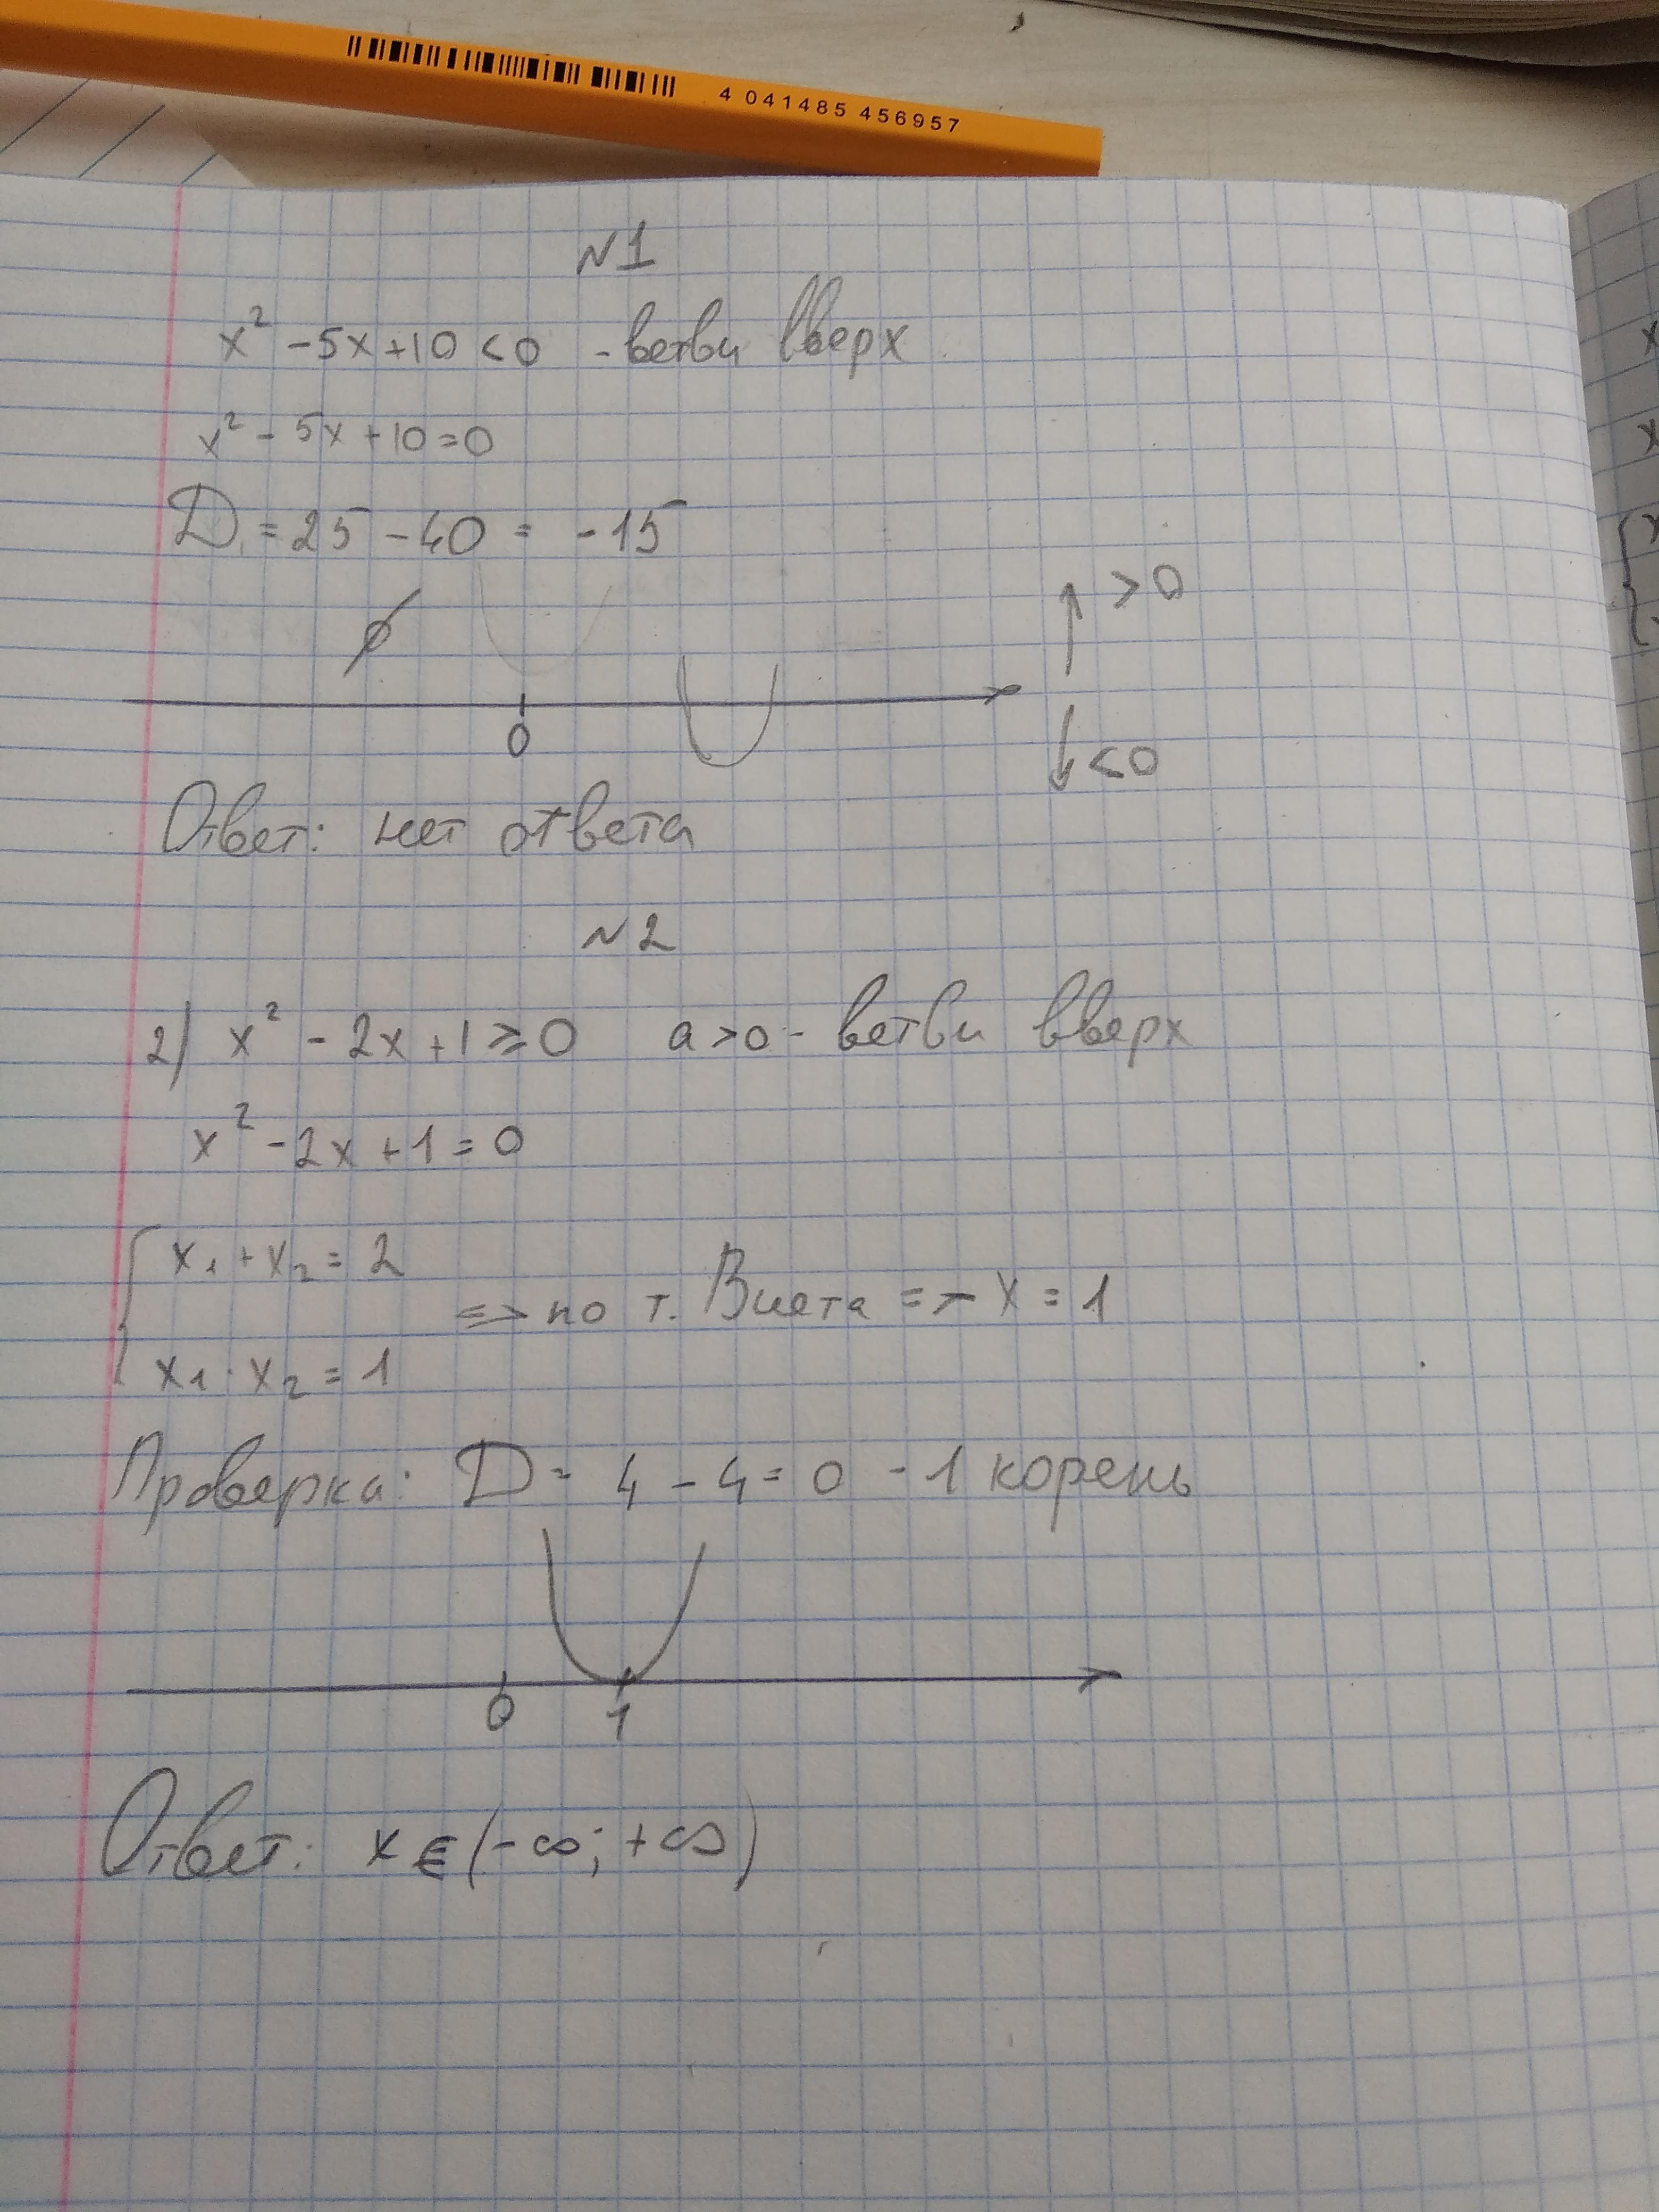 4 041485 456957
№1
x² - 5x + 10 < 0 - ветви вверх
x² - 5x + 10 = 0
D = 25 - 40 = -15
∅
↑ > 0
0
↓ < 0
Ответ: нет ответа
№2
2) x² - 2x + 1 ≥ 0 a > 0 - ветви вверх
x² - 2x + 1 = 0
{ x₁ + x₂ = 2
=> по т. Виета => x = 1
x₁ · x₂ = 1
Проверка: D = 4 - 4 = 0 - 1 корень
0 1
Ответ: x ∈ (-∞; +∞)